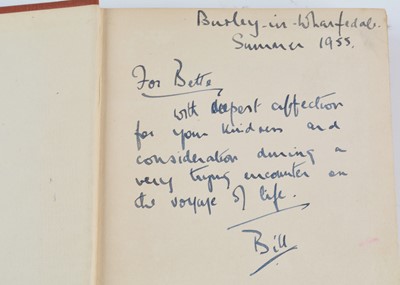 Burley-in-Wharfedale.
Summer 1955.
For Bette,
with deepest affection
for your kindness and
consideration during a
very trying encounter on
the voyage of life.
Bill